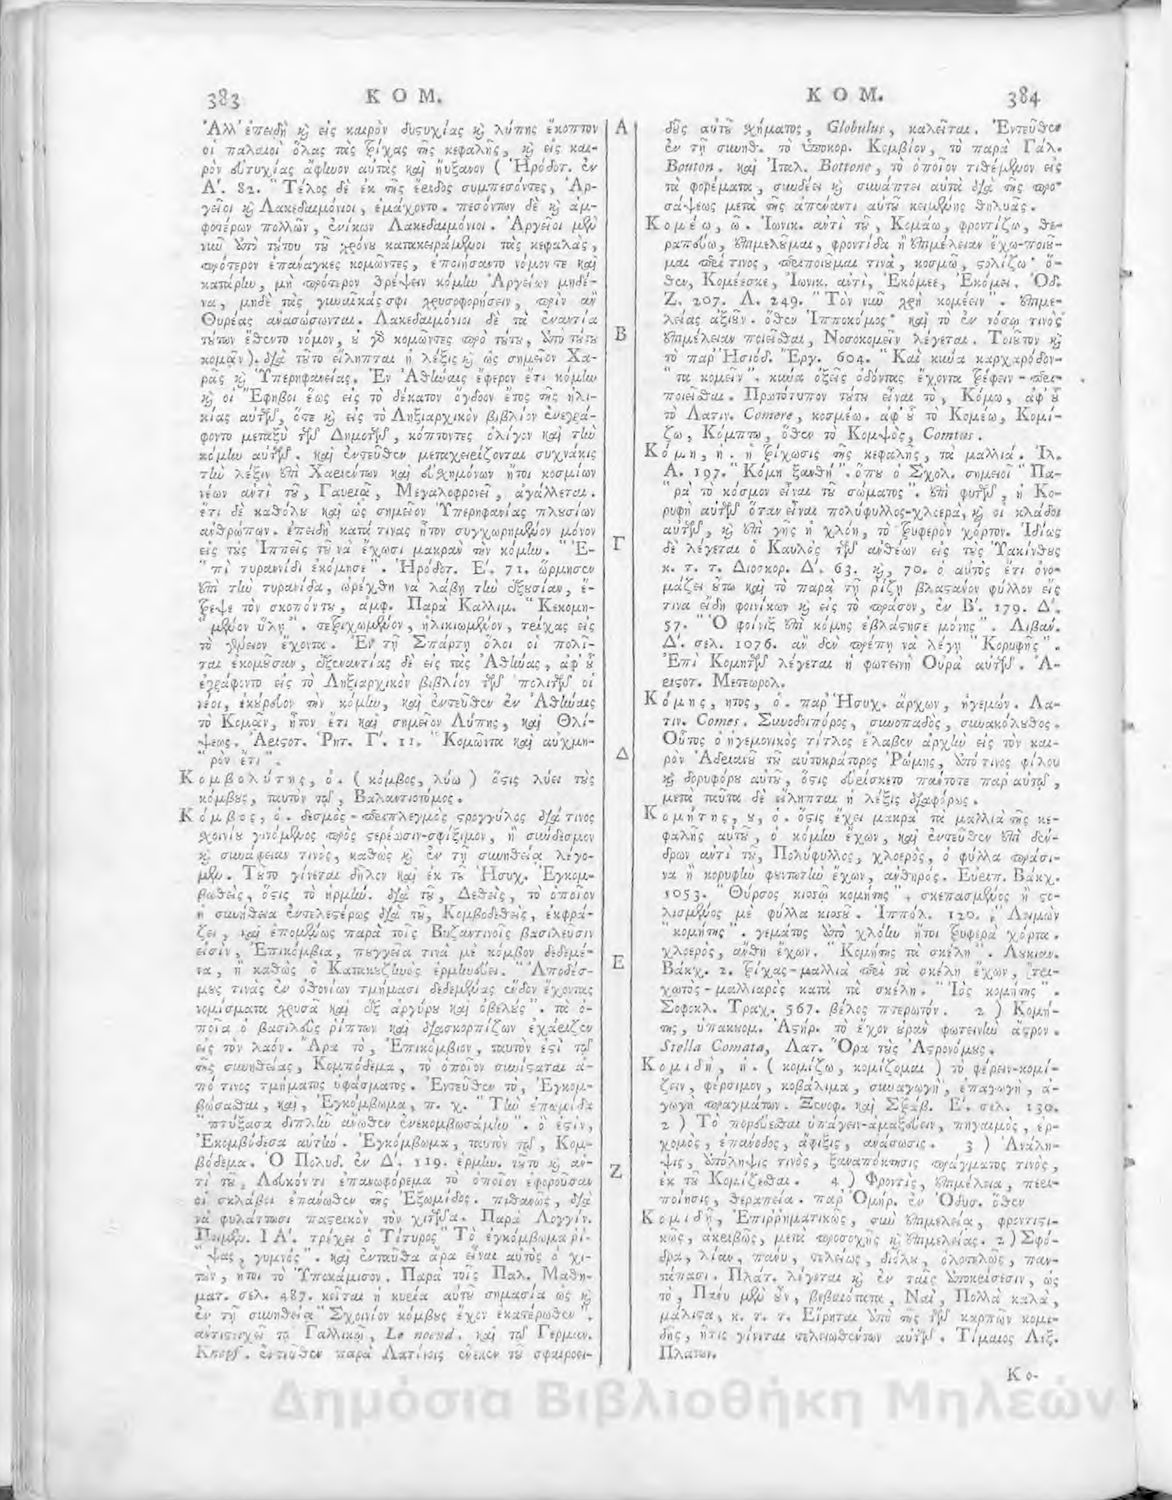 383
ΚΟΜ.
Ἀλλ' ἐπειδὴ ϗ εἰς καιρὸν δυστυχίας ϗ λύπης ἔκοπτον
οἱ παλαιοὶ ὅλας τὰς τρίχας τῆς κεφαλῆς, ϗ εἰς και-
ρὸν εὐτυχίας ἄφινον αὐτὰς καὶ ηὔξανον ( Ἡρόδοτ. ἐν
Α΄. 82. " Τέλος δὲ ἐκ τῆς ἔριδος συμπεσόντες, Ἀρ-
γεῖοι ϗ Λακεδαιμόνιοι, ἐμάχοντο. πεσόντων δὲ ϗ ἀμ-
φοτέρων πολλῶν, ἐνίκων Λακεδαιμόνιοι. Ἀργεῖοι μὲν
νυν ὑπὸ τούτου τοῦ χρόνου κατακειράμενοι τὰς κεφαλὰς,
πρότερον ἐπάναγκες κομῶντες, ἐποιήσαντο νόμον τε καὶ
κατάρην, μὴ πρότερον θρέψειν κόμην Ἀργείων μηδέ-
να, μηδὲ τὰς γυναῖκάς σφι χρυσοφορήσειν, πρὶν ἂν
Θυρέας ἀνασώσωνται. Λακεδαιμόνιοι δὲ τὰ ἐναντία
τούτων ἔθεντο νόμον, οὐ γὰρ κομῶντες πρὸ τούτου, ἀπὸ τούτου
κομᾷν ). διὰ τοῦτο εἴληπται ἡ λέξις ϗ ὡς σημεῖον Χα-
ρᾶς ϗ Ὑπερηφανείας. Ἐν Ἀθήναις ἔφερον ἔτι κόμην
ϗ οἱ Ἔφηβοι ἕως εἰς τὸ δέκατον ὄγδοον ἔτος τῆς ἡλι-
κίας αὐτῶν, ὅτε ϗ εἰς τὸ Ληξιαρχικὸν βιβλίον ἐνεγρά-
φοντο μεταξὺ τῶν Δημοτῶν, κόπτοντες ὀλίγον καὶ τὴν
κόμην αὐτῶν. καὶ ἐντεῦθεν μεταχειρίζονται συχνάκις
τὴν λέξιν ἐπὶ Χαριέντων καὶ εὐσχημόνων ἤτοι κοσμίων
νέων ἀντὶ τοῦ, Γαυριᾷ, Μεγαλοφρονεῖ, ἀγάλλεται.
ἔτι δὲ καθόλου καὶ ὡς σημεῖον Ὑπερηφανίας πλουσίων
ἀνθρώπων. ἐπειδὴ κατά τινας ἦτον συγχωρημένον μόνον
εἰς τοὺς Ἱππεῖς τοῦ νὰ ἔχωσι μακρὰν τὴν κόμην. " Ἐ-
" πὶ τυραννίδι ἐκόμησε ". Ἡρόδοτ. Ε΄. 71. ὥρμησεν
ἐπὶ τὴν τυρανίδα, ὠρέχθη νὰ λάβῃ τὴν ἐξουσίαν, ἔ-
τρεψε τὸν σκοπόν του, ἀμφ. Παρὰ Καλλιμ. " Κεκομη-
" μένον ὕλῃ ". τετριχωμένον, ἡλικιωμένον, τρίχας εἰς
τὸ γένειον ἔχοντα. Ἐν τῇ Σπάρτῃ ὅλοι οἱ πολῖ-
ται ἐκομοῦσαν, ἐξεναντίας δὲ εἰς τὰς Ἀθήνας, ἀφ' οὗ
ἐγράφοντο εἰς τὸ Ληξιαρχικὸν βιβλίον τῶν πολιτῶν οἱ
νέοι, ἐκούρευον τὴν κόμην, καὶ ἐντεῦθεν ἐν Ἀθήναις
τὸ Κομᾷν, ἦτον ἔτι καὶ σημεῖον Λύπης, καὶ Θλί-
ψεως. Ἀριστοτ. Ῥητ. Γ΄. 11. " Κομῶντα καὶ αὐχμη-
" ρὸν ἔτι ".
Κομβολύτης, ὁ. ( κόμβος, λύω ) ὅστις λύει τοὺς
κόμβους, ταυτὸν τῷ, Βαλαντιοτόμος.
Κόμβος, ὁ. δεσμὸς - περιπλεγμὸς στρογγύλος διά τινος
σχοινίου γινόμενος πρὸς στερέωσιν-σφίξιμον, ἢ σύνδεσμον
ϗ συνάφειαν τινὸς, καθὼς ϗ ἐν τῇ συνηθείᾳ λέγο-
μεν. Τοῦτο γίνεται δῆλον καὶ ἐκ τοῦ Ἡσυχ. Ἐγκομ-
βωθεὶς, ὅστις τὸ ἡρμήν. διὰ τοῦ, Δεθεὶς, τὸ ὁποῖον
ἡ συνήθεια ἐντελεστέρως διὰ τοῦ, Κομβοδεθεὶς, ἐκφρά-
ζει, καὶ ἑπομένως παρὰ τοῖς Βυζαντινοῖς βασιλεῦσιν
εἰσὶν, Ἐπικόμβια, πουγγεῖα τινὰ μὲ κόμβον δεδεμέ-
να, ἢ καθὼς ὁ Κατακουζηνὸς ἑρμηνεύει. " Ἀποδέσ-
μους τινὰς ἐν ὀθονίων τμήμασι δεδεμένας ἔνδον ἔχοντας
νομίσματα χρυσᾶ καὶ ἐξ ἀργύρου καὶ ὀβελοὺς ". τὰ ὁ-
ποῖα ὁ βασιλεὺς ῥίπτων καὶ διασκορπίζων ἐχάριζεν
εἰς τὸν λαόν. Ἄρα τὸ, Ἐπικόμβιον, ταυτὸν ἐστὶ τῷ
τῆς συνηθείας, Κομπόδεμα, τὸ ὁποῖον συνίσταται ἀ-
πό τινος τμήματος ὑφάσματος. Ἐντεῦθεν τὸ, Ἐγκομ-
βώσασθαι, καὶ, Ἐγκόμβωμα, π. χ. " Τὴν ἐπωμίδα
" πτύξασα διπλῆν ἄνωθεν ἐνεκομβωσάμην ". ὅ ἐστιν,
Ἐκομβόδεσα αὐτήν. Ἐγκόμβωμα, ταυτὸν τῷ, Κομ-
βόδεμα. Ὁ Πολυδ. ἐν Δ΄. 119. ἑρμην. τοῦτο ϗ ἀν-
τὶ τοῦ, Λευκόν τι ἐπανωφόρεμα τὸ ὁποῖον ἐφοροῦσαν
οἱ σκλάβοι ἐπάνωθεν τῆς Ἐξωμίδος. πιθανῶς, διὰ
νὰ φυλάττωσι παστρικὸν τὸν χιτῶνα. Παρὰ Λογγίν.
Ποιμέν. ΙΑ΄. τρέχει ὁ Τίτυρος " Τὸ ἐγκόμβωμα ῥί-
" ψας, γυμνός ". καὶ ἐνταῦθα ἄρα εἶναι αὐτὸς ὁ χι-
τὼν, ἤτοι τὸ Ὑποκάμισον. Παρὰ τοῖς Παλ. Μαθη-
ματ. σελ. 487. κεῖται ἡ κυρία αὐτοῦ σημασία ὡς ϗ
ἐν τῇ συνηθείᾳ " Σχοινίον κόμβους ἔχον ἑκατέρωθεν ".
ἀντιστοιχεῖ τῷ Γαλλικῷ, Le noeud. καὶ τῷ Γερμαν.
Knopf. ἐντεῦθεν παρὰ Λατίνοις ἕνεκεν τοῦ σφαιροει-
Α
Β
Γ
Δ
Ε
Ζ
ΚΟΜ.
384
δοῦς αὐτοῦ σχήματος, Globulus, καλεῖται. Ἐντεῦθεν
ἐν τῇ συνηθ. τὸ ὑποκορ. Κομβίον, τὸ παρὰ Γάλ.
Bouton. καὶ Ἰταλ. Bottone, τὸ ὁποῖον τιθέμενον εἰς
τὰ φορέματα, συνδέει ϗ συνάπτει αὐτὰ διὰ τῆς προσ-
σάψεως μετὰ τῆς ἀπέναντι αὐτοῦ κειμένης θηλυᾶς.
Κομέω, ῶ. Ἰωνικ. ἀντὶ τοῦ, Κομάω, φροντίζω, θε-
ραπεύω, ἐπιμελοῦμαι, φροντίδα ἢ ἐπιμέλειαν ἔχω-ποιοῦ-
μαι περί τινος, περιποιοῦμαι τινὰ, κοσμῶ, στολίζω· ὅ-
θεν, Κομέεσκε, Ἰωνικ. ἀντὶ, Ἐκόμεε, Ἐκόμει. Ὀδ.
Ζ. 207. Λ. 249. " Τὸν νῦν χρὴ κομέειν ". ἐπιμε-
λείας ἀξιοῦν. ὅθεν Ἱπποκόμος· καὶ τὸ ἐν νόσῳ τινὸς
ἐπιμέλειαν ποιεῖσθαι, Νοσοκομεῖν λέγεται. Τοιοῦτον ϗ
τὸ παρ' Ἡσιόδ. Ἔργ. 604. " Καὶ κύνα καρχαρόδον-
" τα κομεῖν ". κύνα ὀξεῖς ὀδόντας ἔχοντα τρέφειν - περι-
ποιεῖσθαι. Πρωτότυπον τούτου εἶναι τὸ, Κόμω, ἀφ' οὗ
τὸ Λατιν. Comere, κοσμέω. ἀφ' οὗ τὸ Κομέω, Κομί-
ζω, Κόμπτω, ὅθεν τὸ Κομψὸς, Comtus.
Κόμη, ἡ. ἡ τρίχωσις τῆς κεφαλῆς, τὰ μαλλιά. Ἰλ.
Α. 197. " Κόμη ξανθή ". ὅπου ὁ Σχολ. σημειοῖ " Πα-
" ρὰ τὸ κόσμον εἶναι τοῦ σώματος ". ἐπὶ φυτῶν, ἡ Κο-
ρυφὴ αὐτῶν ὅταν εἶναι πολύφυλλος-χλοερὰ, ϗ οἱ κλάδοι
αὐτῶν, ϗ ἐπὶ γῆς ἡ χλόη, τὸ τρυφερὸν χόρτον. Ἰδίως
δὲ λέγεται ὁ Καυλὸς τῶν ἀνθέων εἰς τοὺς Ὑακίνθους
κ. τ. τ. Διοσκορ. Δ΄. 63. ϗ, 70. ὁ αὐτὸς ἔτι ὀνο-
μάζει οὕτω καὶ τὸ παρὰ τῇ ῥίζῃ βλαστάνον φύλλον εἰς
τινα εἴδη φοινίκων ϗ εἰς τὸ πράσον, ἐν Β΄. 179. Δ΄.
57. " Ὁ φοίνιξ ἐπὶ κόμης ἐβλάστησε μόνης ". Λιβαν.
Δ΄. σελ. 1076. ἂν δὲν πρέπῃ νὰ λέγῃ " Κορυφῆς ".
Ἐπὶ Κομητῶν λέγεται ἡ φωτεινὴ Οὐρὰ αὐτῶν. Ἀ-
ριστοτ. Μετεωρολ.
Κόμης, ητος, ὁ. παρ' Ἡσυχ. ἄρχων, ἡγεμών. Λα-
τιν. Comes. Συνοδοιπόρος, συνοπαδὸς, συνακόλουθος.
Οὗτος ὁ ἡγεμονικὸς τίτλος ἔλαβεν ἀρχὴν εἰς τὸν και-
ρὸν Ἀδριανοῦ τοῦ αὐτοκράτορος Ῥώμης, ἀπό τινος φίλου
ϗ δορυφόρου αὐτοῦ, ὅστις εὑρίσκετο πάντοτε παρ' αὐτῷ,
μετὰ ταῦτα δὲ εἴληπται ἡ λέξις διαφόρως.
Κομήτης, ου, ὁ. ὅστις ἔχει μακρὰ τὰ μαλλιὰ τῆς κε-
φαλῆς αὐτοῦ, ὁ κόμην ἔχων, καὶ ἐντεῦθεν ἐπὶ δέν-
δρων ἀντὶ τοῦ, Πολύφυλλος, χλοερὸς, ὁ φύλλα πράσι-
να ἢ κορυφὴν φουντωτὴν ἔχων, ἀνθηρός. Εὐριπ. Βάκχ.
1053. " Θύρσος κισσῷ κομήτης ". σκεπασμένος ἢ στο-
λισμένος μὲ φύλλα κισσοῦ. Ἱππόλ. 120. " Λειμὼν
" κομήτης ". γεμάτος ἀπὸ χλόην ἤτοι τρυφερὰ χόρτα.
χλοερὸς, ἄνθη ἔχων. " Κομήτης τὰ σκέλη ". Λουκιαν.
Βάκχ. 2. τρίχας-μαλλιὰ περὶ τὰ σκέλη ἔχων, τρι-
χωτὸς - μαλλιαρὸς κατὰ τὰ σκέλη. " Ἰὸς κομήτης ".
Σοφοκλ. Τραχ. 567. βέλος πτερωτόν. 2 ) Κομή-
της, ὑπακουομ. Ἀστήρ. τὸ ἔχον οὐρὰν φωτεινὴν ἄστρον.
Stella Comata, Λατ. Ὅρα τοὺς Ἀστρονόμους.
Κομιδὴ, ἡ. ( κομίζω, κομίζομαι ) τὸ φέρειν-κομί-
ζειν, φέρσιμον, κοβάλιμα, συναγωγὴ, ἐπαγωγὴ, ἀ-
γωγὴ πραγμάτων. Ξενοφ. καὶ Στράβ. Ε΄. σελ. 130.
2 ) Τὸ πορεύεσθαι ὑπάγειν-ἁμαξεύειν, πηγαιμὸς, ἐρ-
χομὸς, ἐπάνοδος, ἄφιξις, ἀνάσωσις. 3 ) Ἀνάλη-
ψις, ἀπόληψις τινὸς, ξαναπόκτησις πράγματος τινὸς,
ἐκ τοῦ Κομίζεσθαι. 4 ) Φροντὶς, ἐπιμέλεια, περι-
ποίησις, θεραπεία. παρ' Ὁμήρ. ἐν Ὀδυσ. ὅθεν
Κομιδῇ, Ἐπιρρηματικῶς, σὺν ἐπιμελείᾳ, φροντιστι-
κῶς, ἀκριβῶς, μετὰ προσοχῆς ϗ ἐπιμελείας. 2 ) Σφό-
δρα, λίαν, πάνυ, τελείως, διόλου, ὁλοτελῶς, παν-
τάπασι. Πλάτ. λέγεται ϗ ἐν ταῖς ἀποκρίσεσιν, ὡς
τὸ, Πάνυ μὲν οὖν, βεβαιότατα, Ναὶ, Πολλὰ καλὰ,
μάλιστα, κ. τ. τ. Εἴρηται ἀπὸ τῆς τῶν καρπῶν κομι-
δῆς, ἥτις γίνεται τελειωθέντων αὐτῶν. Τίμαιος Λεξ.
Πλατων.
Κο-
Δημόσια Βιβλιοθήκη Μηλεών